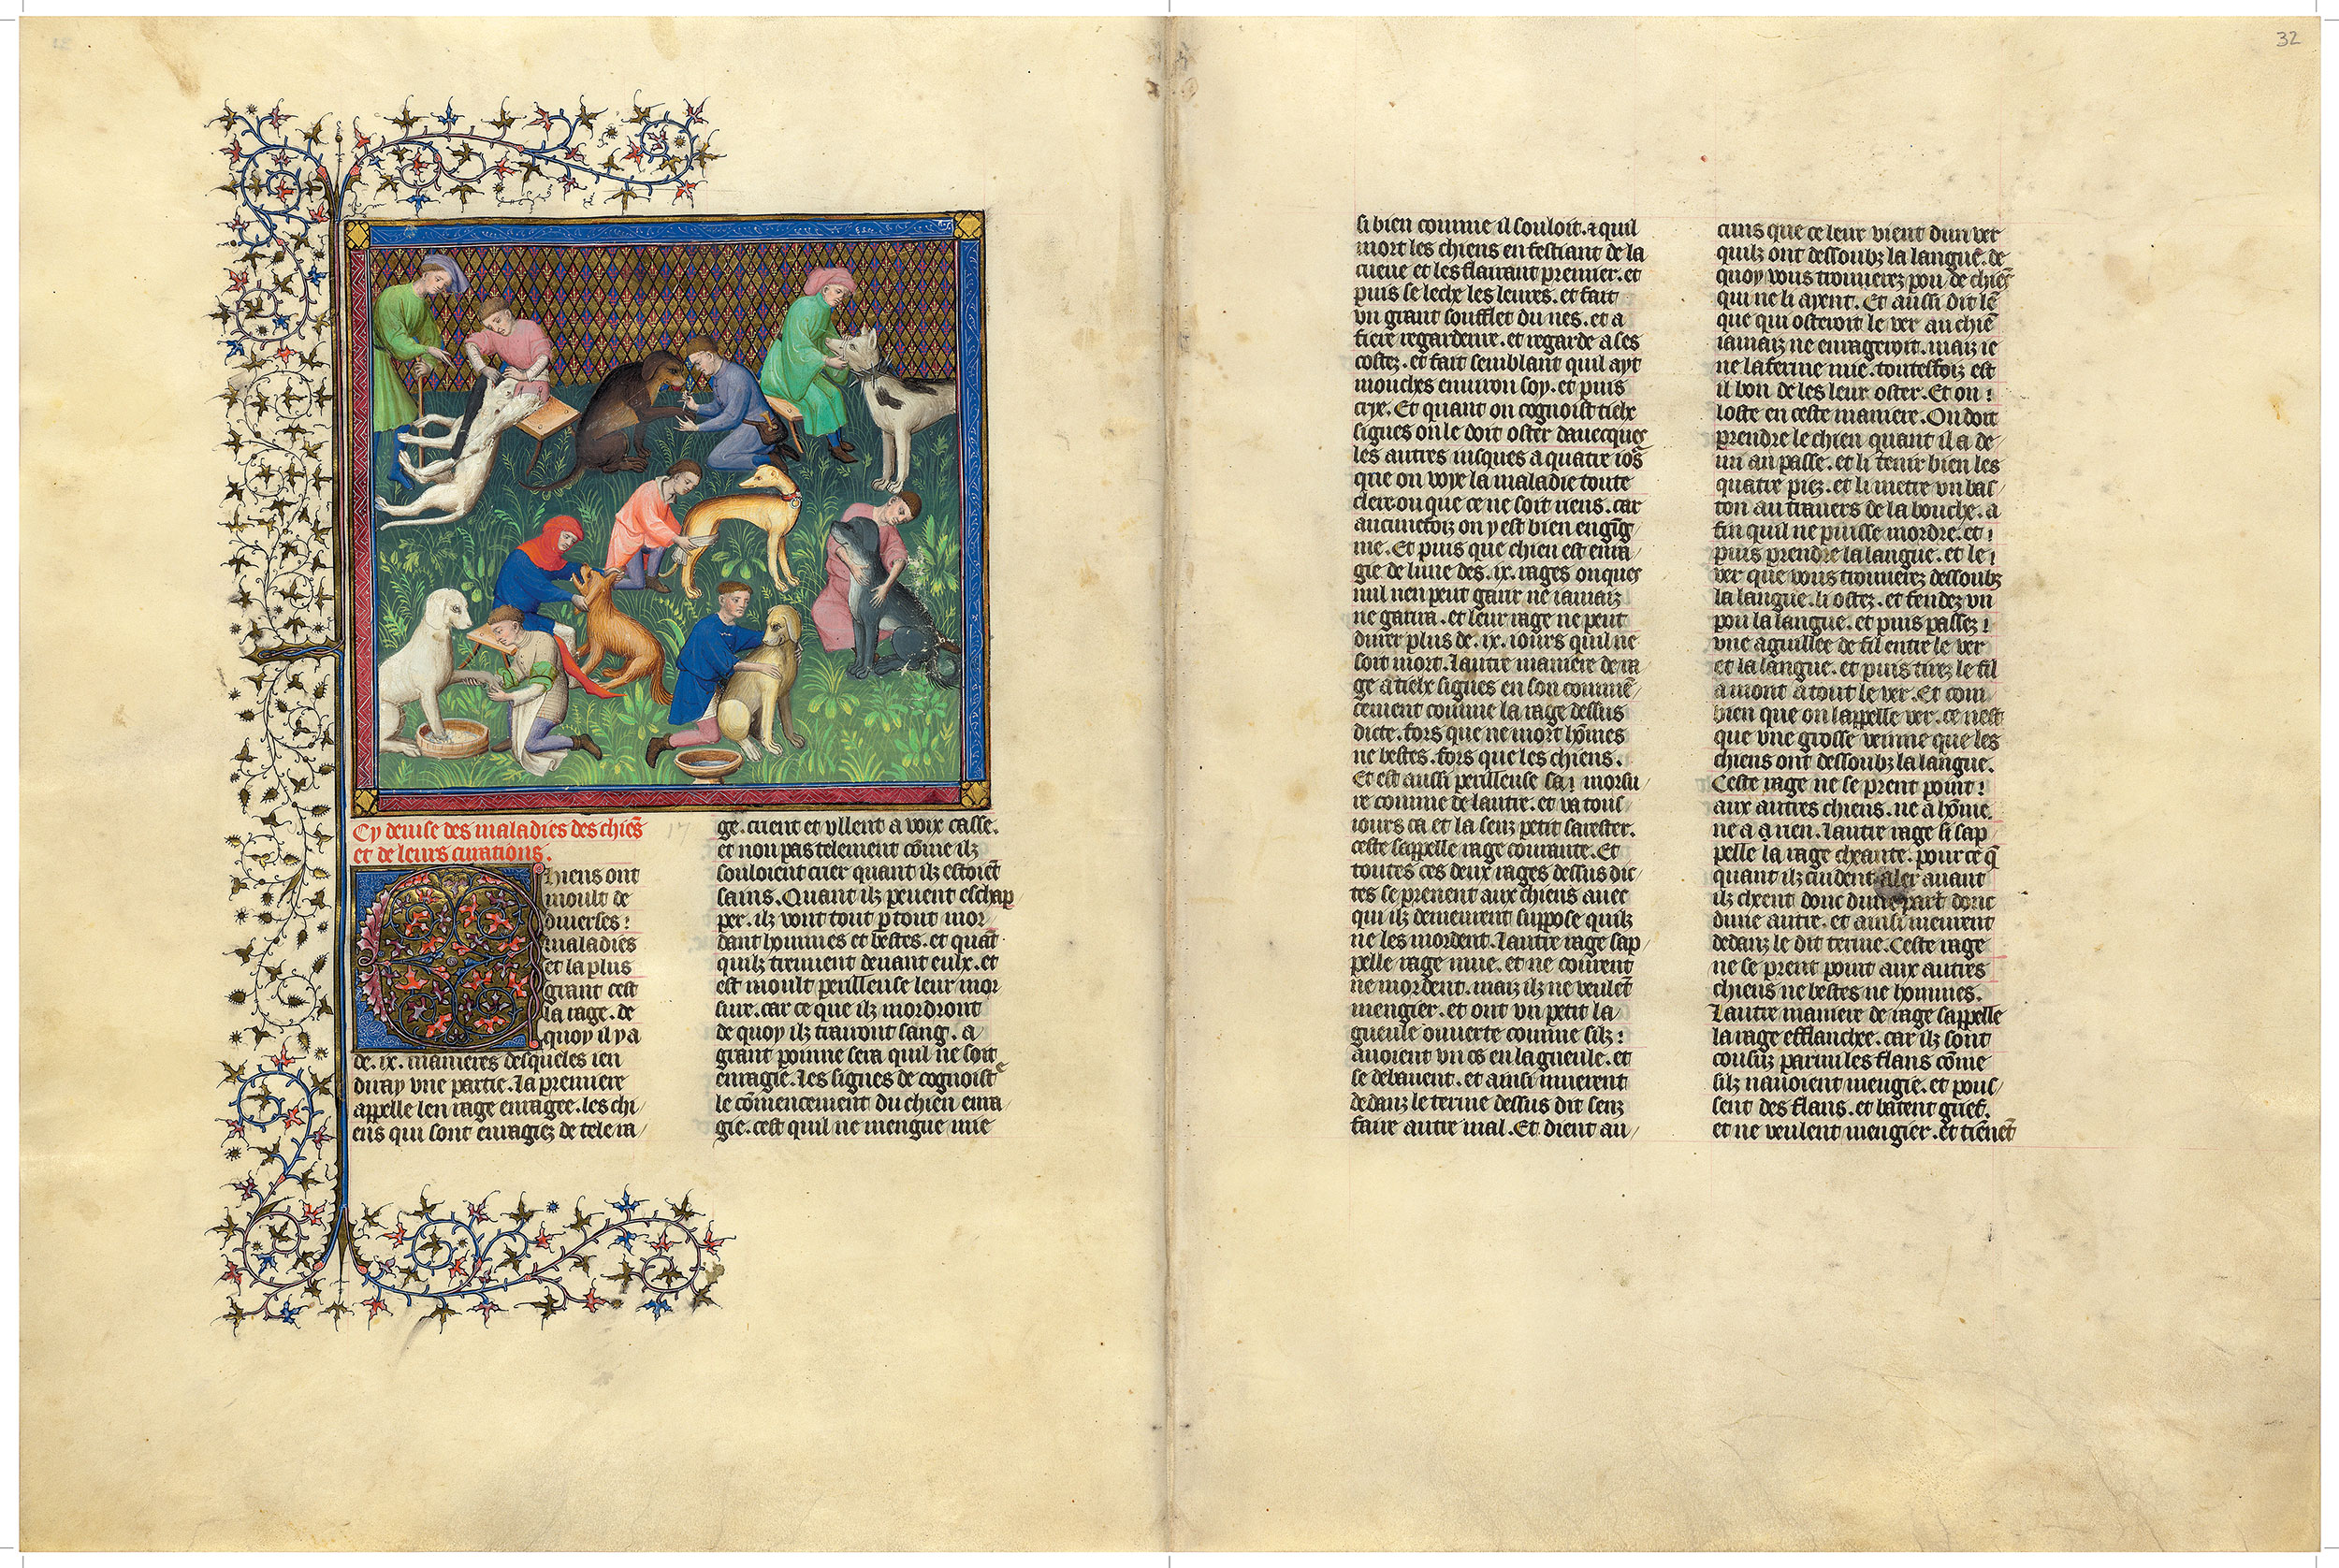 Cy deuise des maladies des chiēs
et de leurs curations.
Chiens ont
moult de
diuerses
maladies
et la plus
grant cest
la rage. de
quoy il y a
de. ix. manieres desqueles ien
diray vne partie. La premiere
appelle len rage enragee. les chi/
ens qui sont enragiez de tele ra/
ge. crient et vllent a voix casse.
et non pas telement cōme ilz
souloient crier quant ilz estoiēt
sains. Quant ilz peuent eschap
per. ilz vont tout ptout mor/
dant hommes et bestes. et quāt
quilz treuuent deuant eulx. et
est moult perilleuse leur mor
sure. car ce que ilz mordront
de quoy ilz trairont sang. a
grant poinne sera quil ne soit
enragie. Les signes de cognoistᵉ
le cōmencement du chien enra/
gie. cest quil ne mengue mie
32
si bien comme il souloit. ⁊ quil
mort les chiens en festiant de la
cueue et les flairant premier. et
puis se leche les leures. et fait
vn grant soufflet du nes. et a
fiere regardeure. et regarde a ses
costez. et fait semblant quil ayt
mouches enuiron soy. et puis
crye. Et quant on cognoist tielx
signes on le doit oster dauecques
les autres iusques a quatre iors
que on voye la maladie toute
clere. ou que ce ne soit riens. car
aucunefoiz on y est bien engig
nie. Et puis que chien est enra/
gie de lune des. ix. rages onques
nul nen peut garir ne iamaiz
ne garira. et leur rage ne peut
durer plus de. ix. iours quil ne
soit mort. Lautre maniere de ra/
ge a tielx signes en son commē/
cement comme la rage dessus
dicte. fors que ne mort hōmes
ne bestes. fors que les chiens.
Et est aussi perilleuse sa morsu/
re comme de lautre. et va tous/
iours ca et la senz petit sarester.
ceste sappelle rage courante. Et
toutes ces deux rages dessus dic/
tes se prenent aux chiens auec
qui ilz demeurent suppose quilz
ne les mordent. Lautre rage sap/
pelle rage mue. et ne courent
ne mordent. maiz ilz ne veulēt
mengier. et ont vn petit la
gueule ouuerte comme silz
auoient vn os en la gueule. et
se debauent. et ainsi muerent
dedanz le terme dessus dit senz
faire autre mal. Et dient au/
cuns que ce leur vient dun ver
quilz ont dessoubz la langue. de
quoy vous trouuerez pou de chiēs
qui ne li ayent. Et aussi dit lē
que qui osteroit le ver au chiē
iamaiz ne enrageroit. maiz ie
ne laferme mie. toutesfoiz est
il bon de les leur oster. Et on
loste en ceste maniere. On doit
prendre le chien quant il a de/
mi an passe. et li tenir bien les
quatre piez. et li mettre vn bas/
ton au trauers de la bouche. a
fin quil ne puisse mordre. et
puis prendre la langue. et le
ver que vous trouuerez dessoubz
la langue. li ostez. et fendez vn
pou la langue. et puis passez
vne aguillee de fil entre le ver
et la langue. et puis tirez le fil
amont atout le ver. Et com/
bien que on lappelle ver. ce nest
que vne grosse veinne que les
chiens ont dessoubz la langue.
Ceste rage ne se prent point
aux autres chiens. ne a hōme.
ne a a rien. Lautre rage si sap
pelle la rage cheante. pour ce q̄
quant ilz cuident aler auant
ilz cheent donc dune part donc
dune autre. et ainsi meurent
dedanz le dit terme. Ceste rage
ne se prent point aux autres
chiens ne bestes ne hommes.
Lautre maniere de rage sappelle
la rage efflanchee. car ilz sont
cousuz parmi les flans cōme
silz nauoient mengie. et pous/
sent des flans. et batent grief.
et ne veulent mengier. et tiēnēt